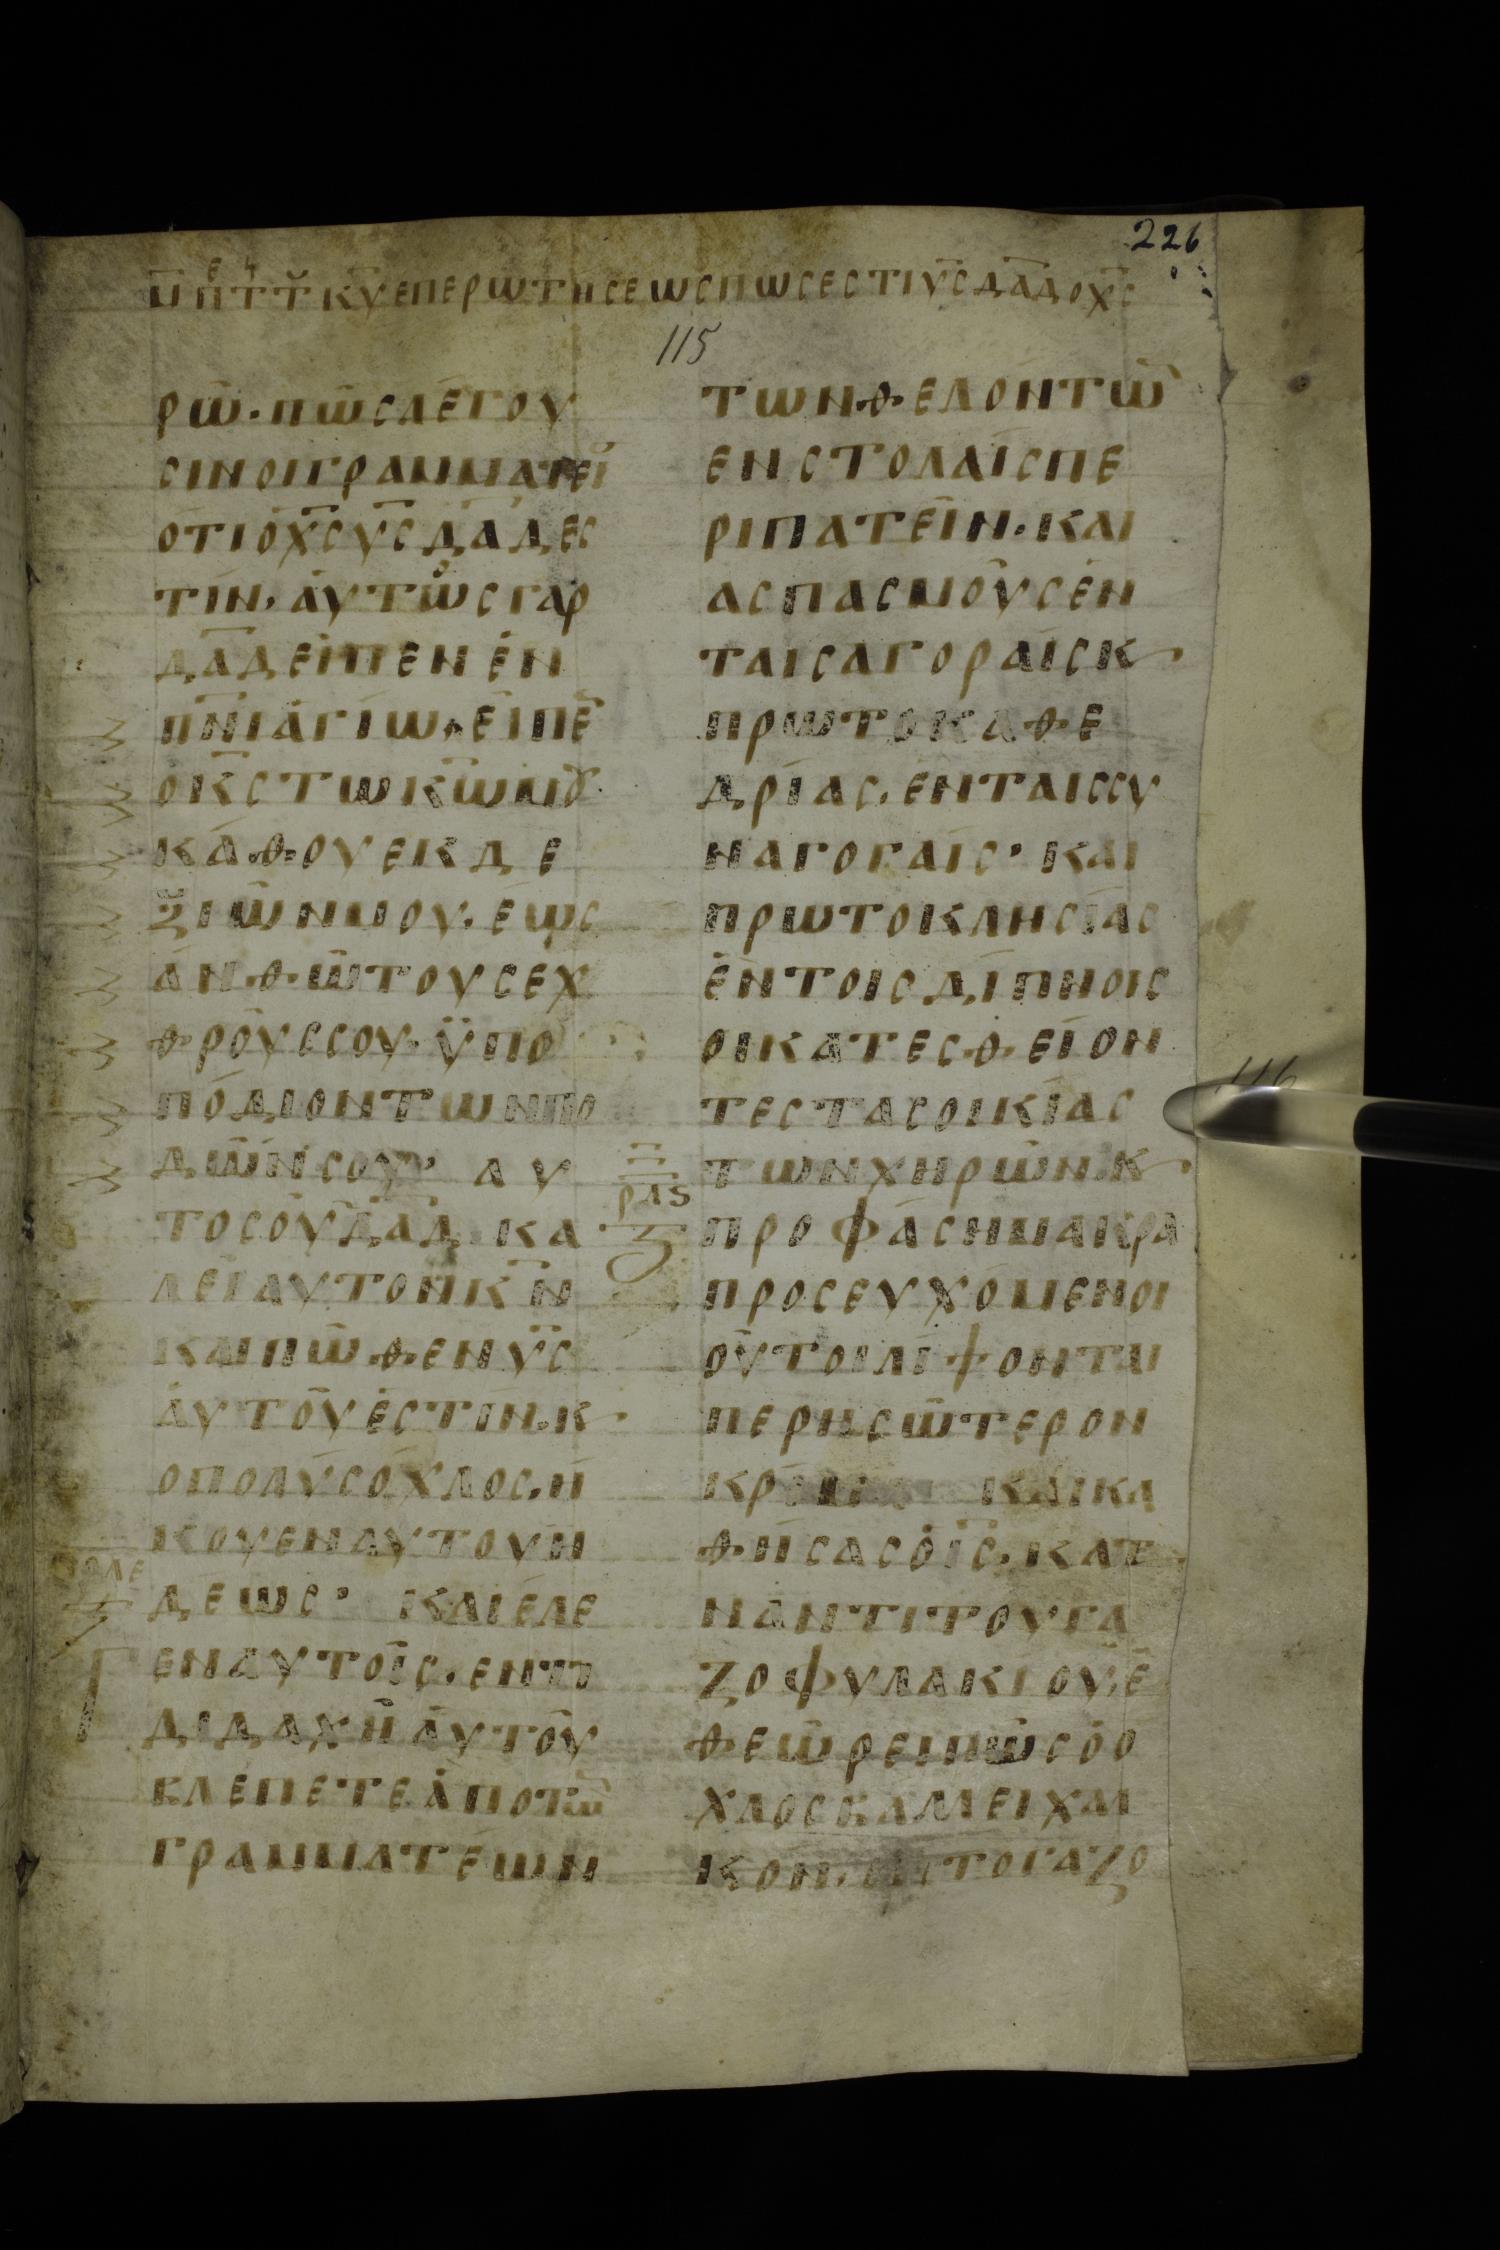 226
π πε τ τ κυ επερωτησεως πως εστι υς δαδ ο χς
115
ρω · πως λεγου
σιν οι γραμματει
οτι ο χς υς δαδ εσ
τιν · αυτως γαρ
δαδ ειπεν εν
πνι αγιω · ειπε
ο κς τω κω μου
καθου εκ δε
ξιων μου · εως
αν θω τους εχ
θρους σου · υπο
ποδιον των πο
δων σου · αυ
τος ουν δαδ κα
λει αυτον κν
και πωθεν υς
αυτου εστιν · κ
ο πολυς οχλος · η
κουεν αυτου η
ρλε
δεως · και ελε
γεν αυτοις · εν τη
διδαχη αυτου
βλεπετε απο τω
γραμματεων
των θελοντω
εν στολαις πε
ριπατειν · και
ασπασμους εν
ταις αγοραις κ
πρωτοκαθε
δριας · εν ταις συ
ναγογαις · και
πρωτοκλησιας
εν τοις διπνοις
οι κατεσθειον
τες τας οικιας
των χηρων · κ
ρλς
προφαση μακρα
προσευχομενοι
ουτοι λιψονται
περησωτερον
και κα
θησας ο ις · κατ
ναντι του γα
ζοφυλακιου · ε
θεωρει πως ο ο
χλος βαλλει χαλ
κον · εις το γαζο
116